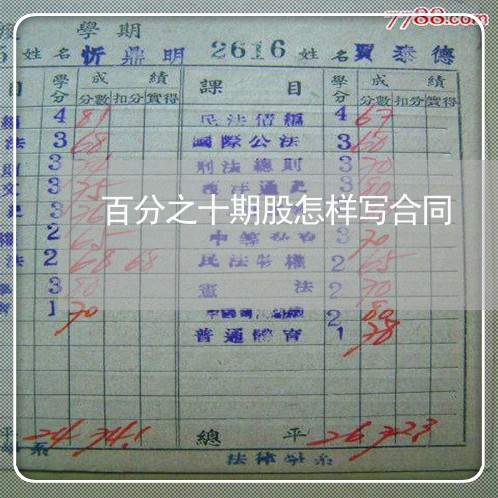 7788.com
學期
姓名 忻鼎明 2616 姓名 賈泰德
目 學分 成績 課目 學分 成績
分數 扣分 實得 分數 扣分 實得
4 81 民法債編 4 67
法 3 68 國際公法 3 60
3 刑法總則 3 70
3 75 西洋通史 3 80
百分之十期股怎样写合同
2 65 3 70
法 2 68 68 民法物權 2 65
3 80 憲法 2 70
1 70 2 80
普通體育 1 78
平 24 74.1 總平 26 72.3
系 法律學系